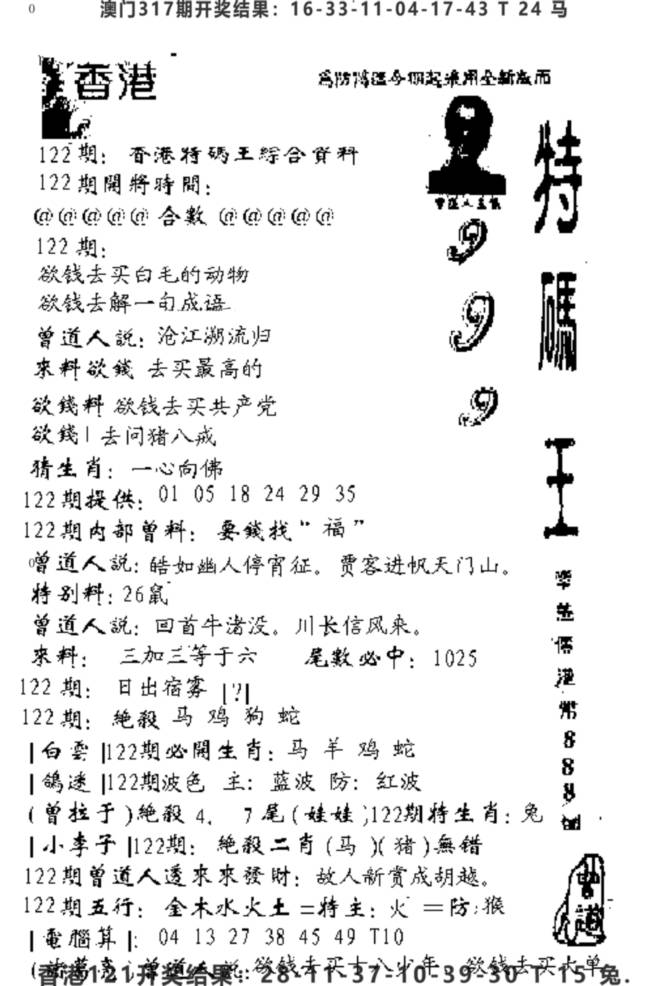 0
澳门317期开奖结果：16-33-11-04-17-43 T 24 马
香港
為防
特碼王
122期： 香港特碼王綜合資料
122期開將時間：
@@@@@ 合數 @@@@@
122期：
欲钱去买白毛的动物
欲钱去解一句成语
曾道人説：沧江溯流归
來料欲錢 去买最高的
欲錢料 欲钱去买共产党
欲錢| 去问猪八戒
猜生肖：一心向佛
122期提供：01 05 18 24 29 35
122期内部曾料：要錢找“福”
曾道人説：皓如幽人停宵征。贾客进帆天门山。
特别料：26鼠
曾道人説：回首牛渚没。川长信风来。
來料： 三加三等于六 尾數必中：1025
122期： 日出宿雾 |?|
122期： 絶殺 马 鸡 狗 蛇
|白雲|122期必開生肖：马 羊 鸡 蛇
|鴿迷|122期波色 主：蓝波 防：红波
(曾拉于)絶殺4. 7尾(娃娃)122期特生肖：兔
|小李子|122期：絶殺二肖(马)(猪)無错
122期曾道人透來來發財：故人新赏成胡越。
122期五行：金木水火土=特主：火 =防:猴
|電腦算|：04 13 27 38 45 49 T10
曾道人説:欲钱去买十八少年 欲钱去买大单
香港121开奖结果：28-11-37-10-39-30 T 15 兔.
港幣888